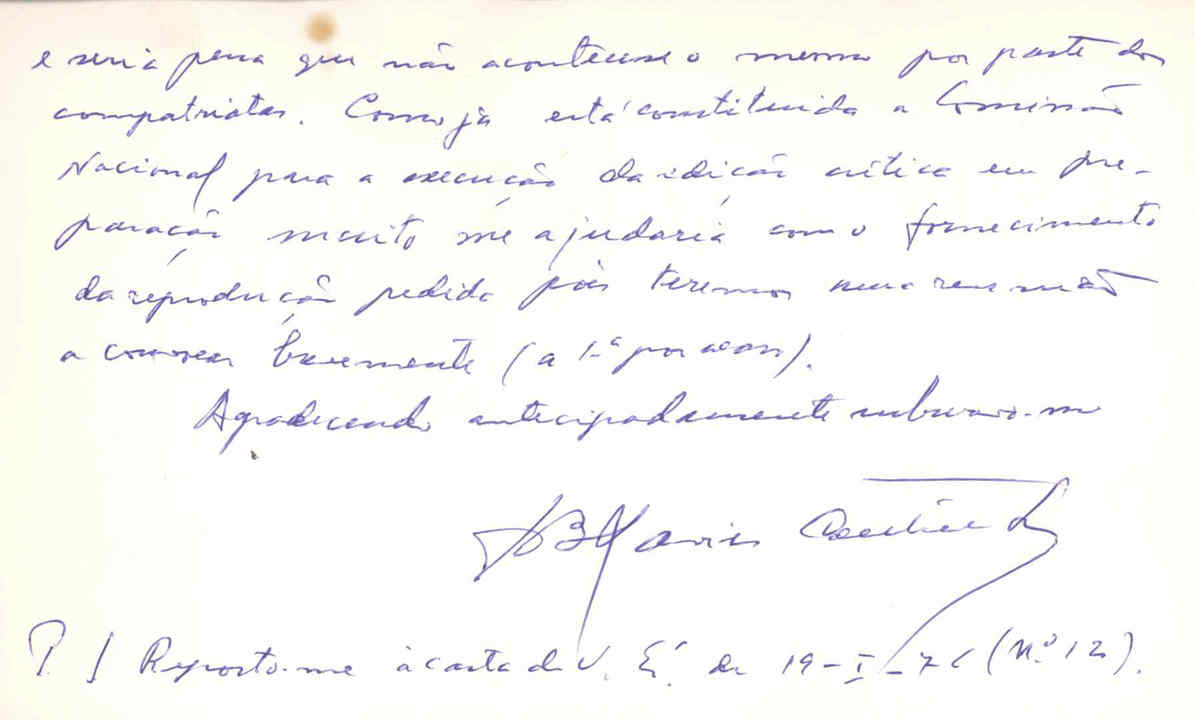 e seria pena que não acontecesse o mesmo por parte dos
compatriotas. Como já está constituida a Comissão
Nacional para a execução da edição critica em pre-
paração muito me ajudaria com o fornecimento
da reprodução pedida pois teremos uma reunião
a começar brevemente (a 1.ª por acaso).
Agradecendo antecipadamente subscrevo-me
Xavier Coutinho
P. S Reporto-me à carta de V. Ex.ª de 19-I-76 (N.º 12).